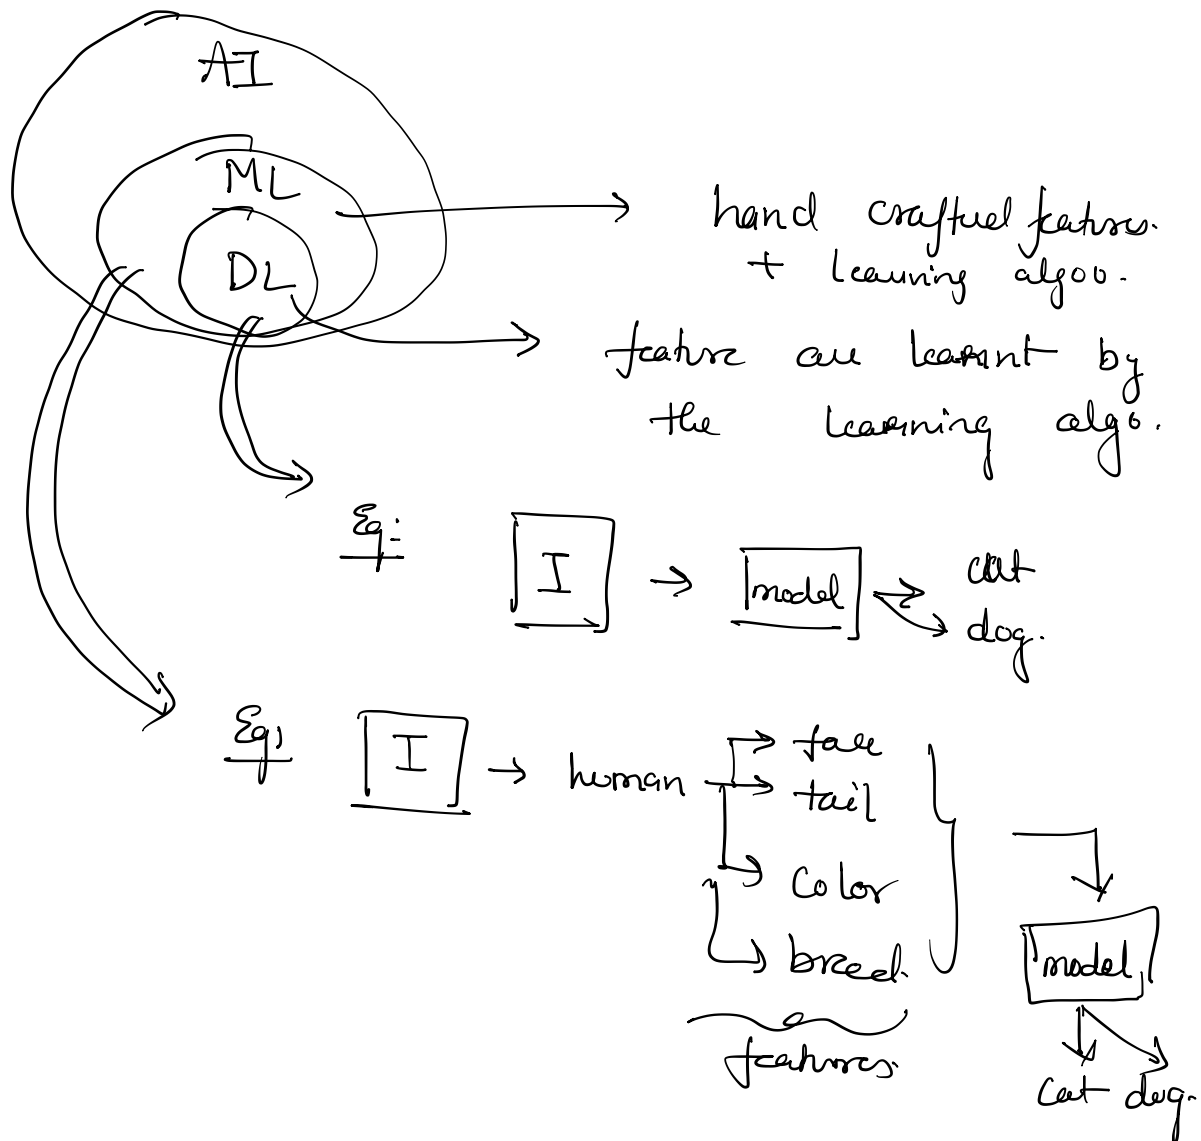 AI
ML
DL
hand crafted features.
+ learning algoo.
feature are learnt by
the learning algo.
Eg:
I
model
cat
dog.
Eg;
I
human
face
tail
color
breed.
features.
model
cat dog.